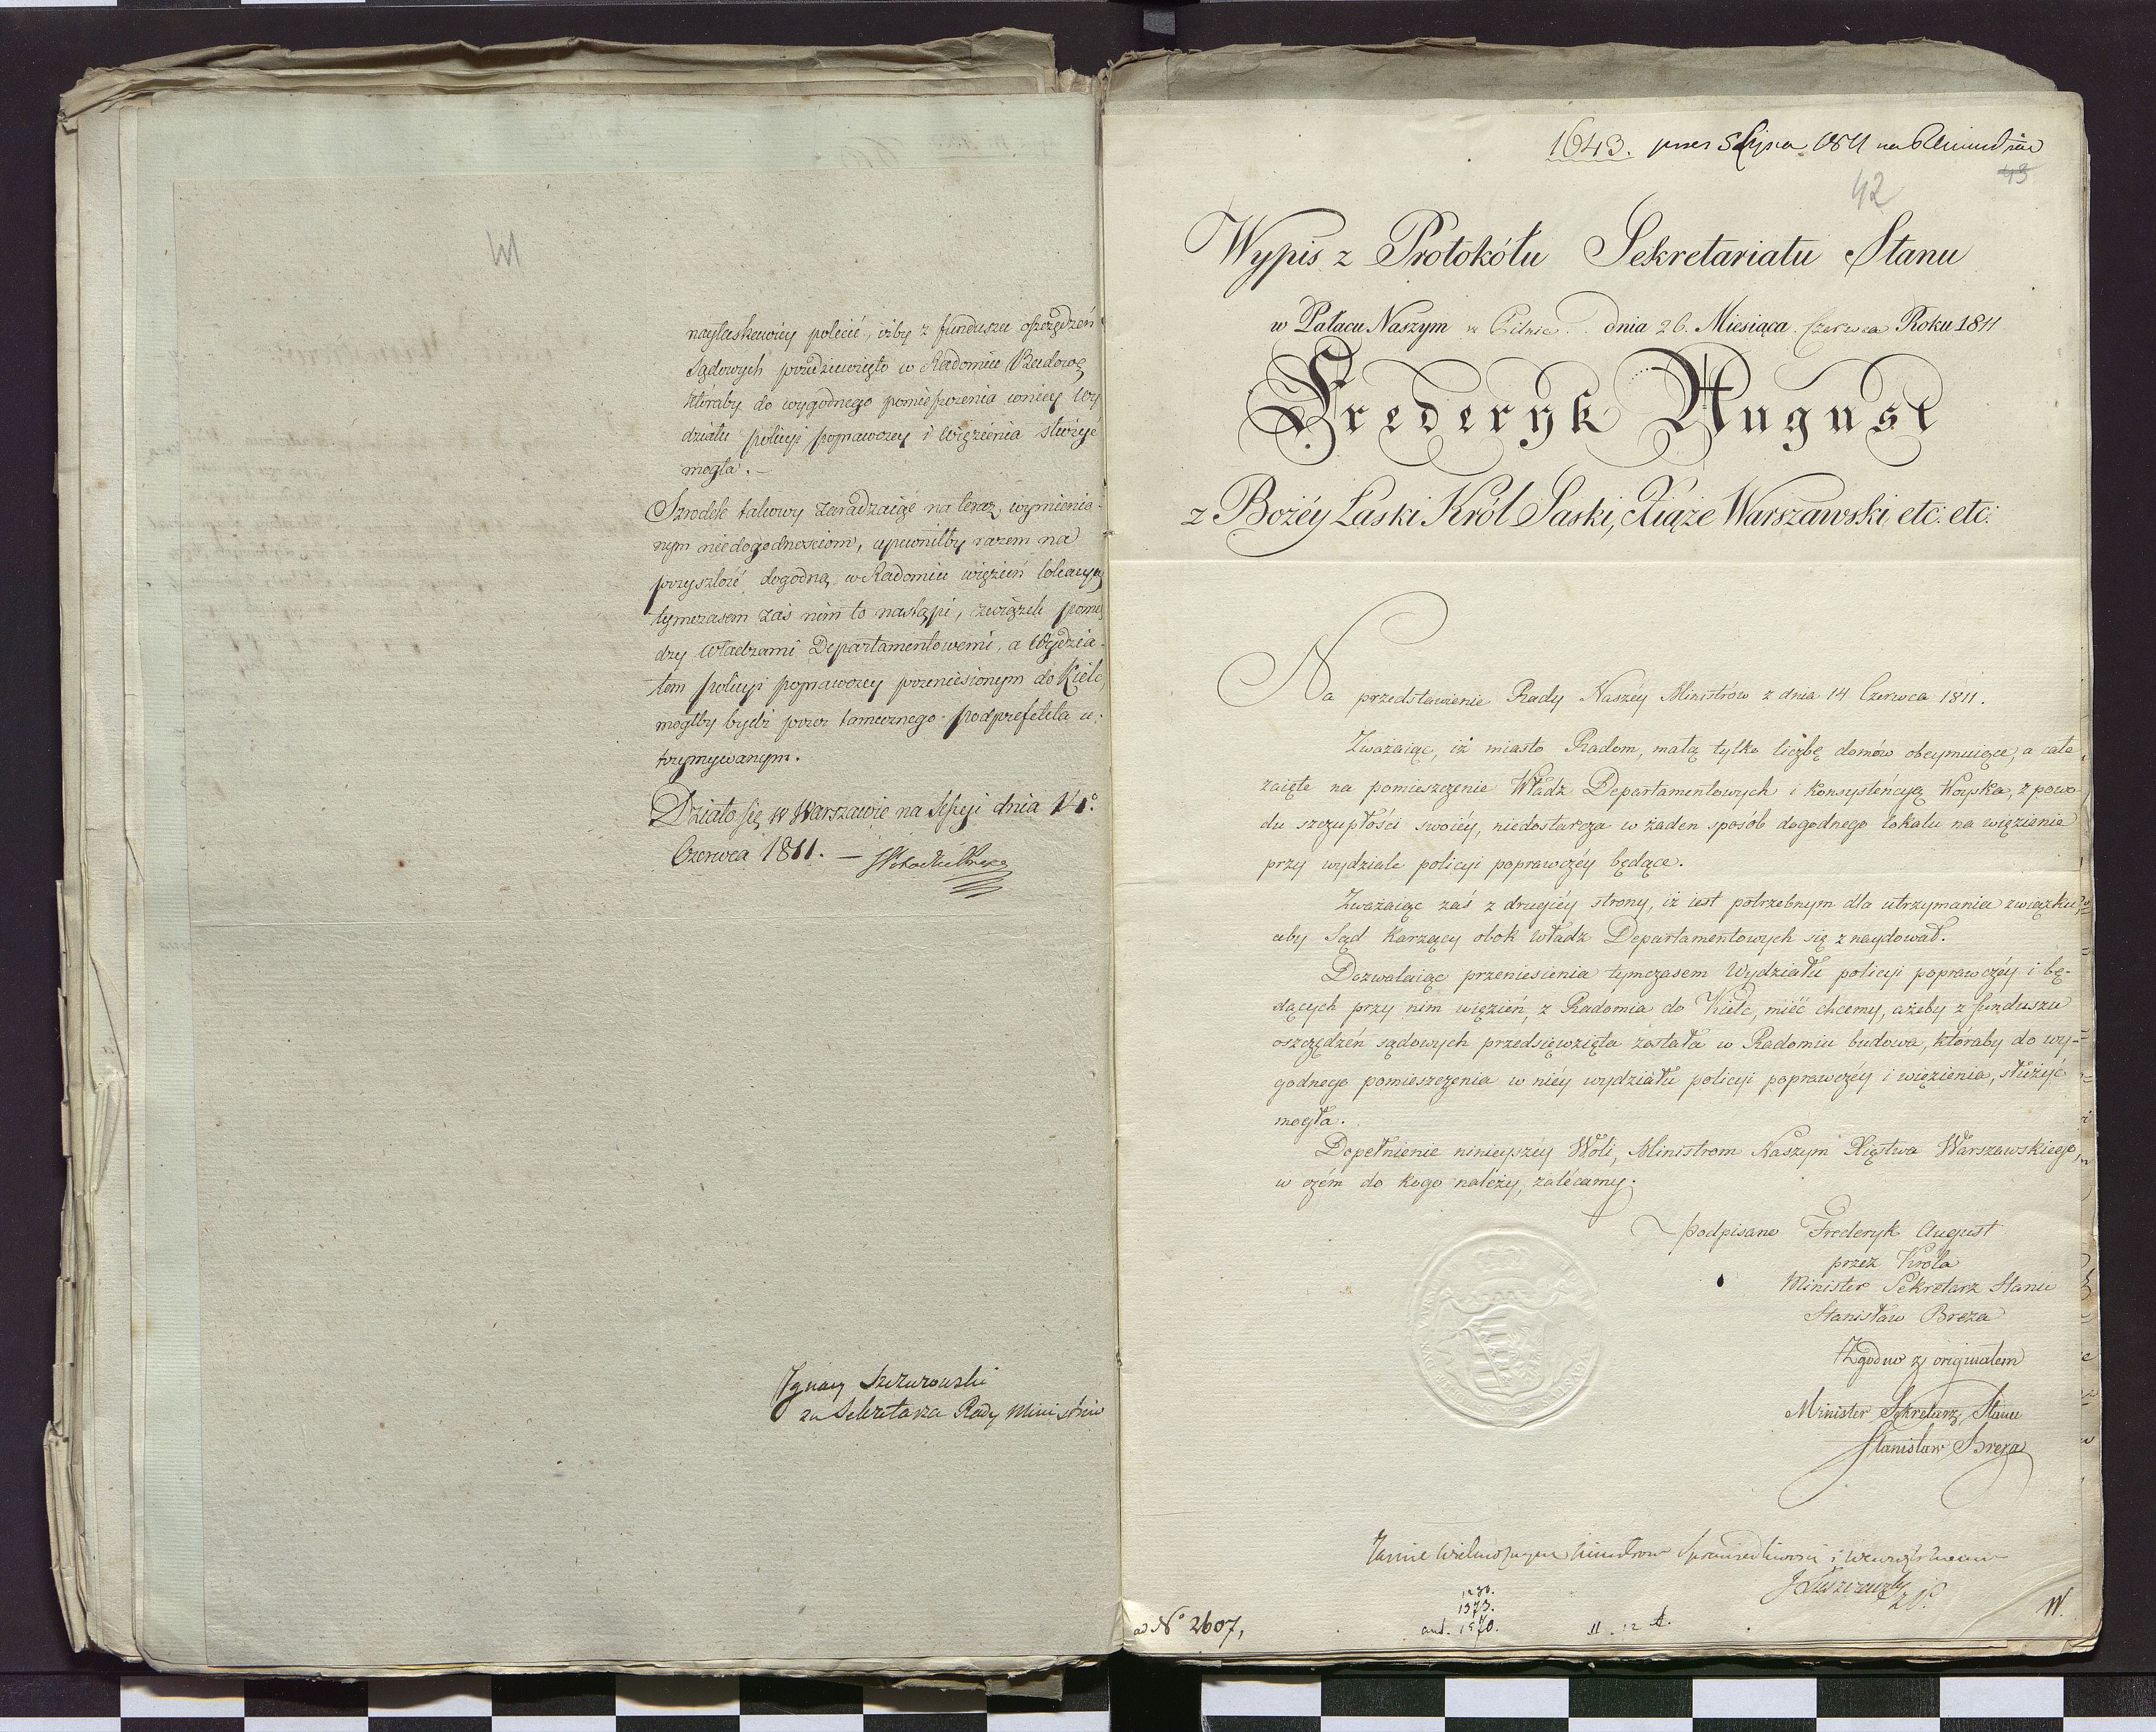 nayłaskawiey polecić, iżby z funduszu oszczędzeń
Sądowych przedsięwzięto w Radomiu Budowę
któraby do wygodnego pomieszczenia wniey Wy
działu policyi poprawczey i Więzienia służyć
mogła. —
Szrodek takowy zaradzaiąc na teraz, wymienio-
nym niedogodnościom, upewniłby razem na
przyszłość dogodną w Radomiu więzień lokacyą
tymczasem zaś nim to nastąpi, związek pomię
dzy Władzami Departamentowemi, a Wydzia-
łem policyi poprawczey przeniesionym do Kielc,
mogłby bydź przez tamecznego podprefekta u-
trzymywanym.
Działo się w Warszawie na Sessyi dnia 14º
Czerwca 1811. —
Ignacy Szczurowski
za Sekretarza Rady Ministrów
1643. 5 Lipca 1811
43
42
Wypis z Protokółu Sekretariatu Stanu
w Pałacu Naszym w Pilnic dnia 26. Miesiąca Czerwca Roku 1811
Frederyk August
z Bożéy Łaski Król Saski, Xiąże Warszawski, etc: etc:
Na przedstawienie Rady Naszéy Ministrów z dnia 14 Czerwca 1811.
Zważaiąc, iż miasto Radom, małą tylko liczbę domów obeymuiące, a całe
zaięte na pomieszczenie Władz Departamentowych i konsystencyą Woyska, z powo
du szczupłości swoiéy, niedostarcza w żaden sposób dogodnego lokalu na więzienie
przy wydziale policyi poprawczéy będące.
Zważaiąc zaś z drugiéy strony, iż iest potrzebnym dla utrzymania związku,
aby Sąd karzący obok Władz Departamentowych się znaydował.
Dozwalaiąc przeniesienia tymczasem Wydziału policyi poprawczéy i bę-
dących przy nim więzień, z Radomia do Kielc, mieć chcemy, ażeby z funduszu
oszczędzeń sądowych przedsięwzięta została w Radomiu budowa, któraby do wy-
godnego pomieszczenia w niéy wydziału policyi poprawczéy i więzienia, służyć
mogła.
Dopełnienie ninieyszéy Woli, Ministrom Naszym Xięstwa Warszawskiego,
w czém do kogo należy, zalécamy.
podpisano Frederyk August
przez Króla
Minister Sekretarz Stanu
Stanisław Breza
Zgodno z originałem
Minister Sekretarz Stanu
Stanisław Breza
Jaśnie Wielmożnym Ministrom Sprawiedliwości i Wewnętrznemu
ad Nº 2607,
1230.
1373.
ant. 1570.